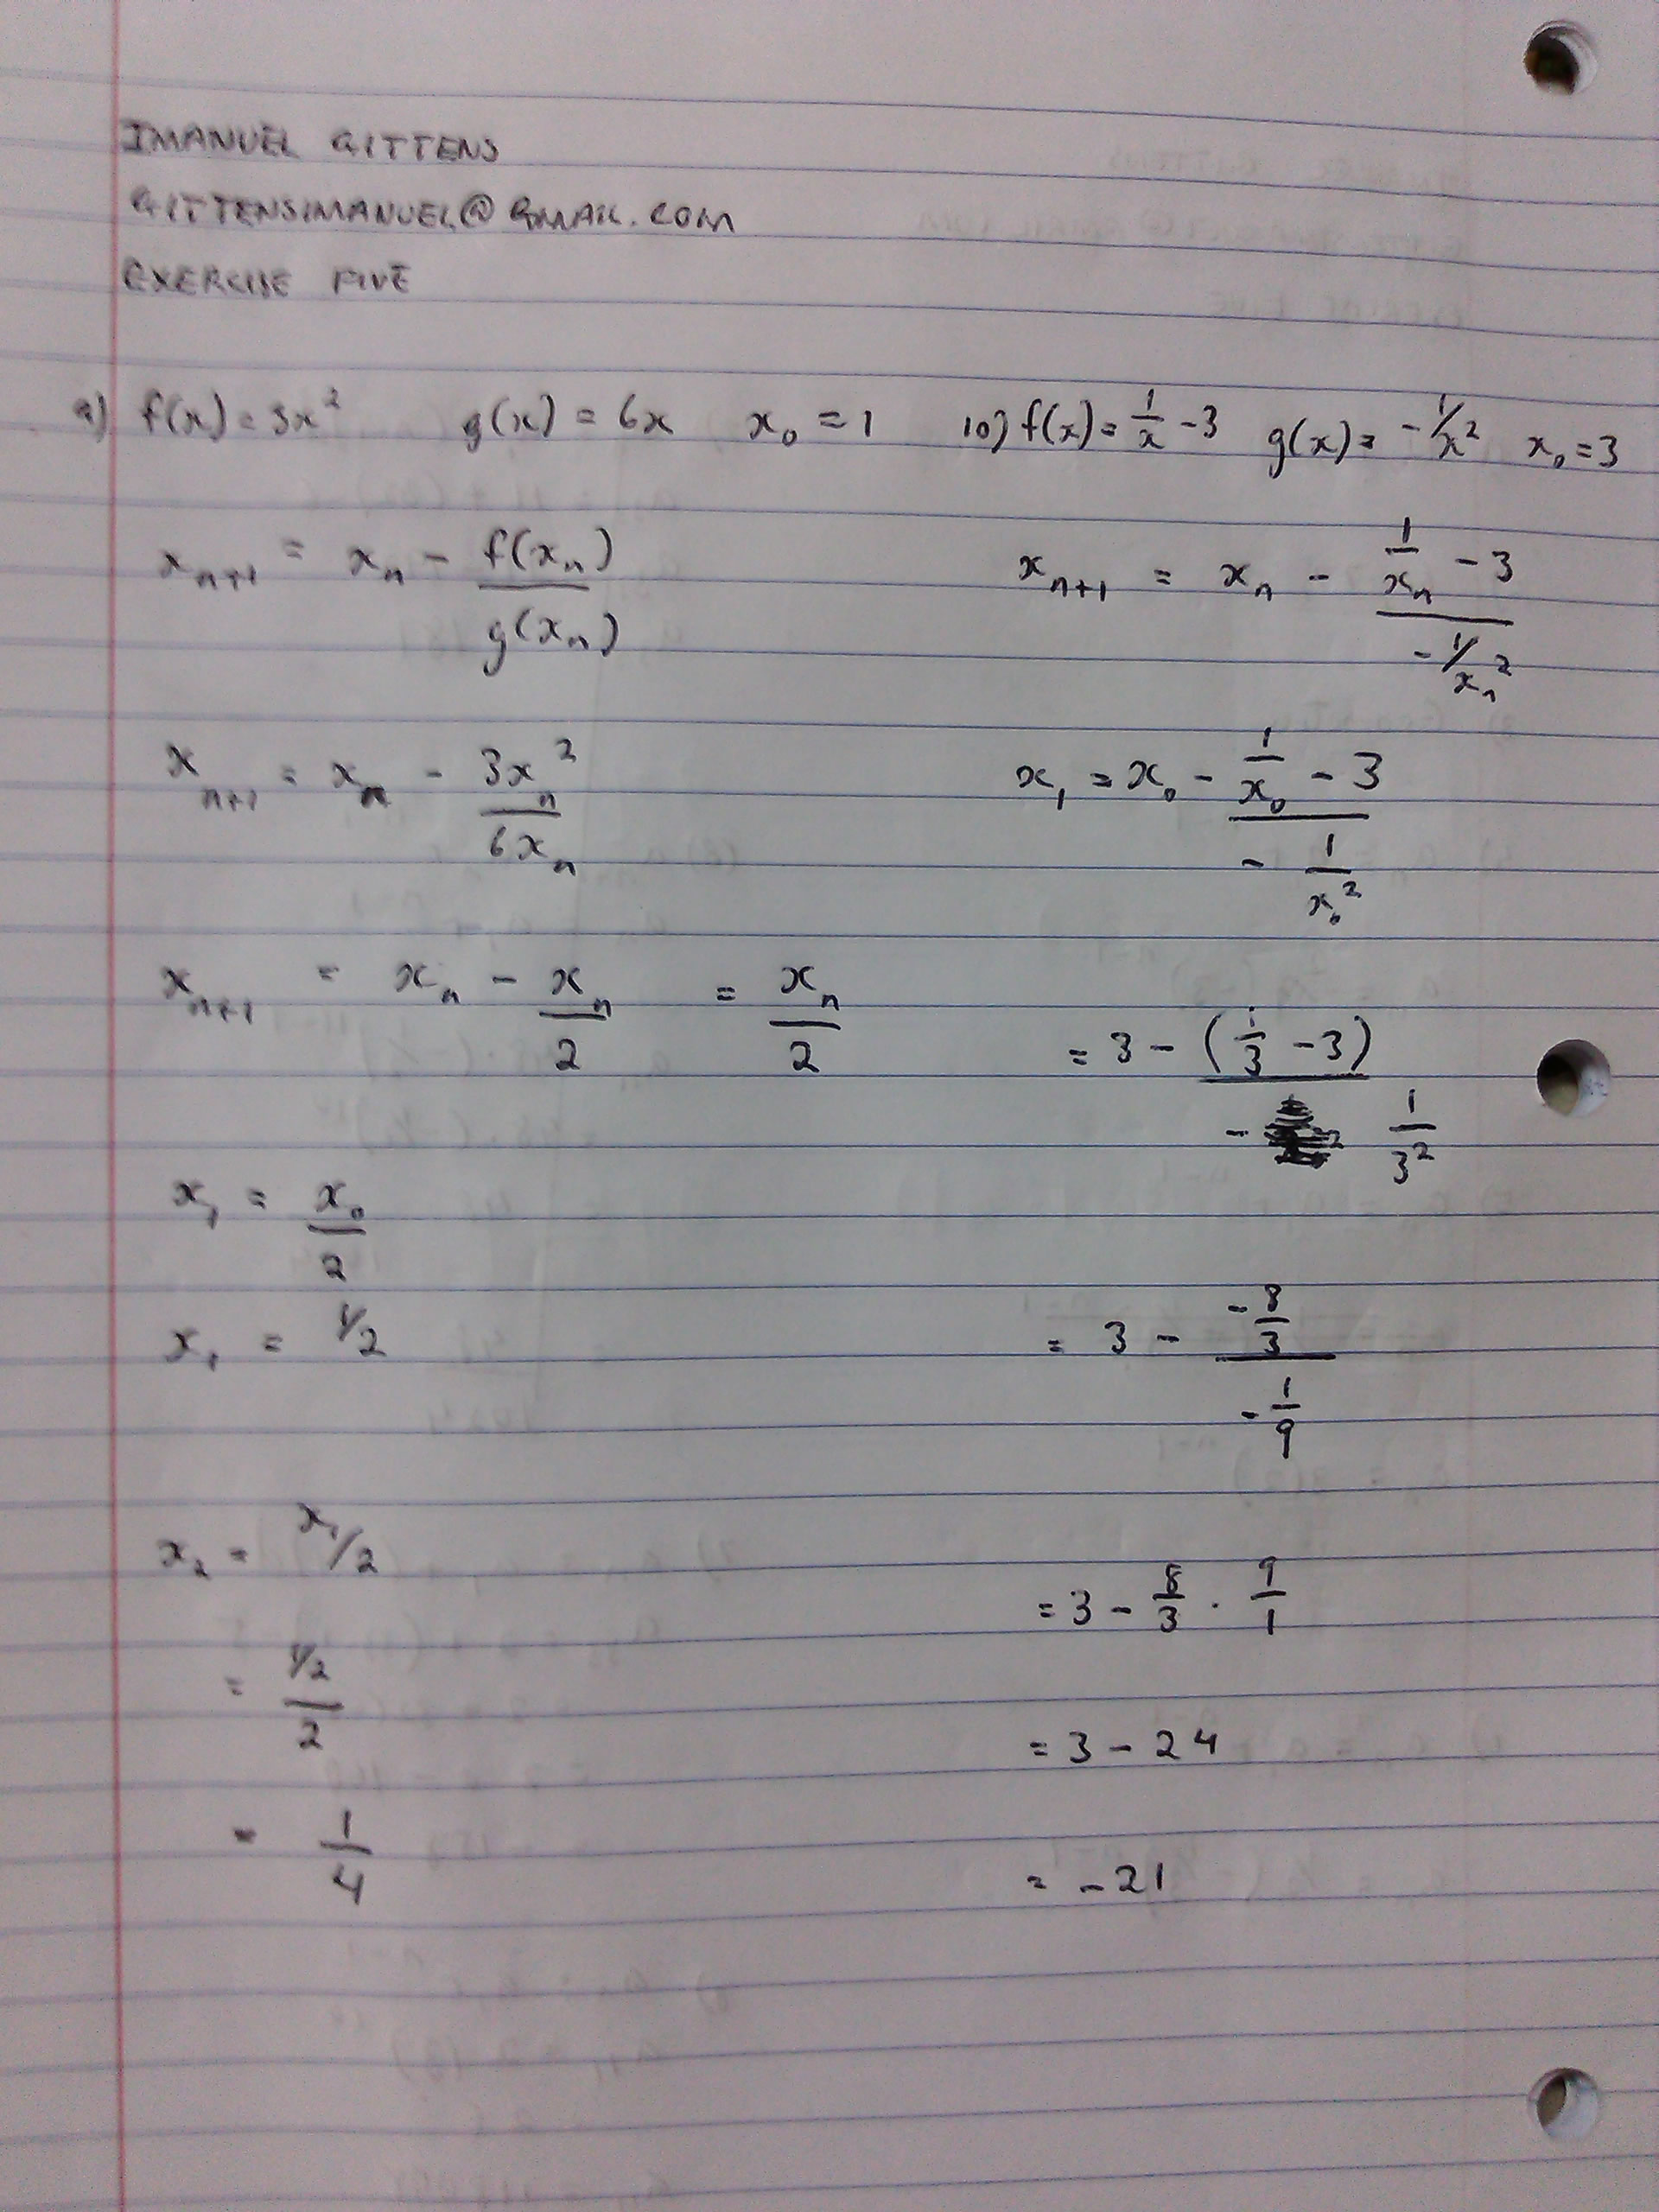 IMANUEL GITTENS
GITTENSIMANUEL@GMAIL.COM
EXERCISE FIVE
9) f(x) = 3x² g(x) = 6x x₀ = 1
xₙ₊₁ = xₙ - f(xₙ)/g(xₙ)
xₙ₊₁ = xₙ - 3xₙ²/6xₙ
xₙ₊₁ = xₙ - xₙ/2 = xₙ/2
x₁ = x₀/2
x₁ = 1/2
x₂ = x₁/2
= (1/2)/2
= 1/4
10) f(x) = 1/x - 3 g(x) = -1/x² x₀ = 3
xₙ₊₁ = xₙ - (1/xₙ - 3)/(-1/xₙ²)
x₁ = x₀ - (1/x₀ - 3)/(-1/x₀²)
= 3 - (1/3 - 3)/(- 1/3²)
= 3 - (-8/3)/(-1/9)
= 3 - 8/3 · 9/1
= 3 - 24
= -21